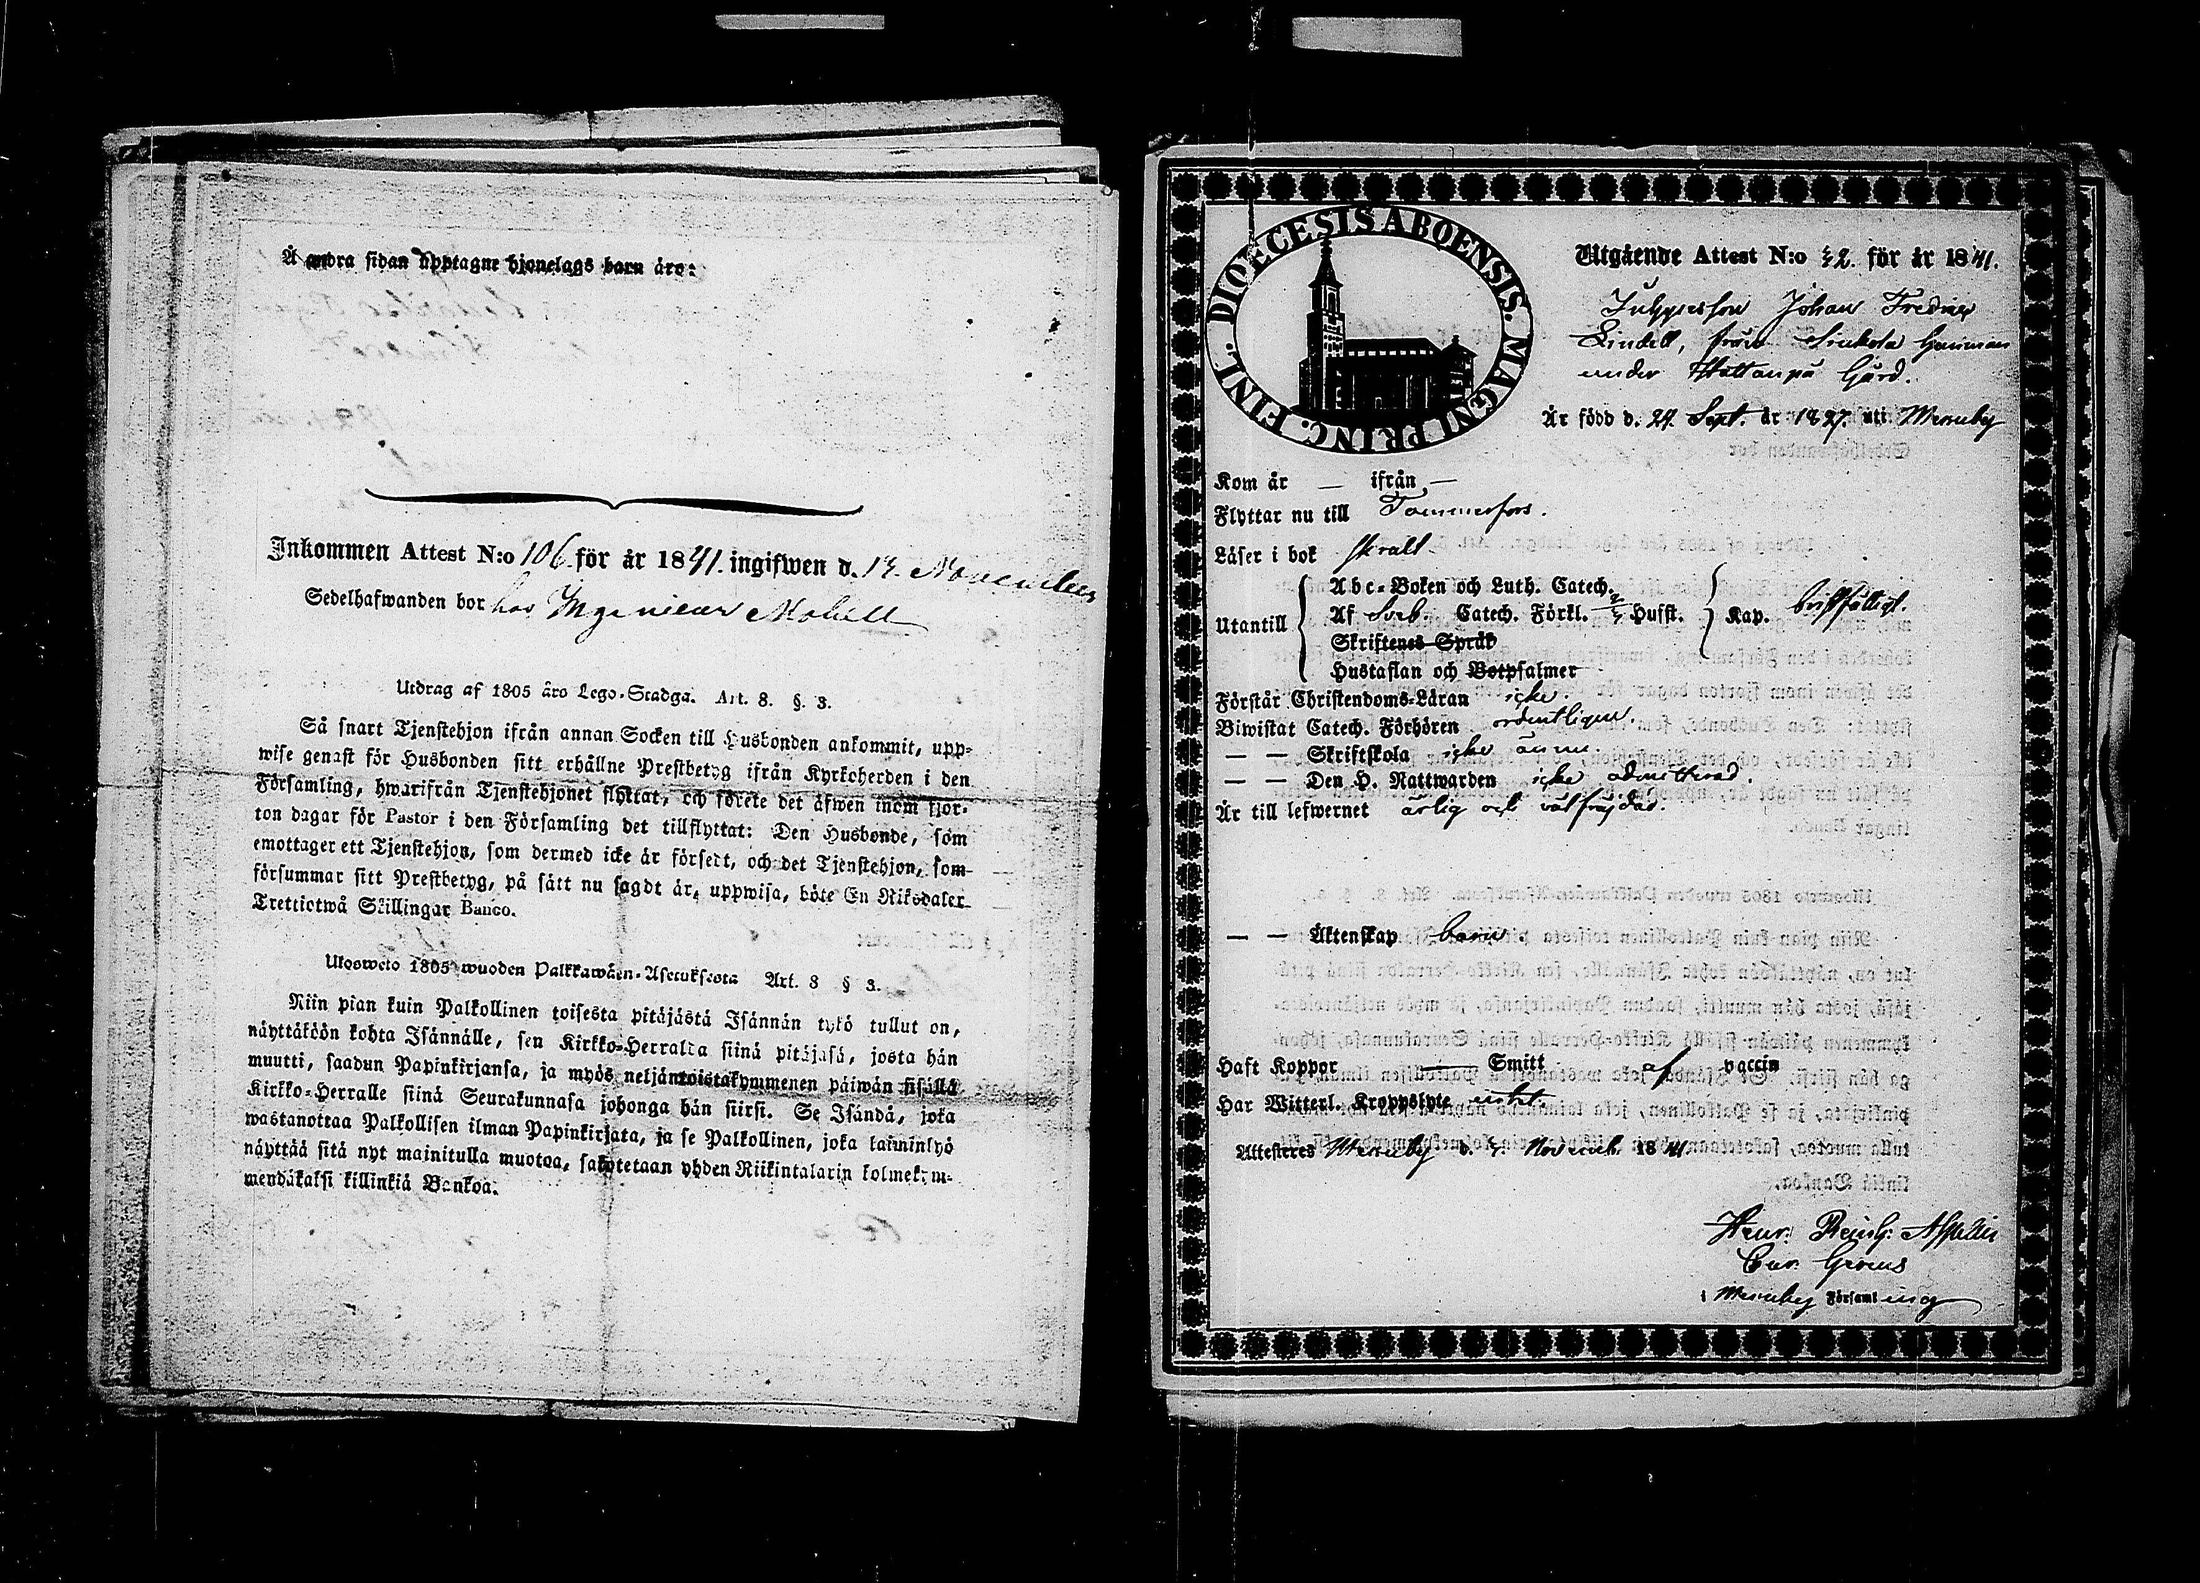 Å andra sidan upptagne hjonelags barn äro:
Inkommen Attest N:o 106 för år 1841. ingifwen d. 14. November
Sedelhafwanden bor hos Ingenieur Mobell
Utdrag af 1805 åro Lego-Stadga. Art. 8. §. 3.
Så snart Tjenstehjon ifrån annan Socken till Husbonden ankommit, upp-
wise genast för Husbonden sitt erhållne Prestbetyg ifrån Kyrkoherden i den
Församling, hwarifrån Tjenstehjonet flyttat, och förete det äfwen inom fjor-
ton dagar för Pastor i den Församling det tillflyttat: Den Husbonde, som
emottager ett Tjenstehjon, som dermed icke är försedt, och det Tjenstehjon, som
försummar sitt Prestbetyg, på sätt nu sagdt är, uppwisa, böte En Riksdaler
Trettiotwå Skillingar Banco.
Ulosweto 1805 wuoden Palkkawäen-Asetuksesta Art. 8 § 3.
Niin pian kuin Palkollinen toisesta pitäjästä Isännän tykö tullut on,
näyttäköön kohta Isännälle, sen Kirkko-Herralta siinä pitäjäsä, josta hän
muutti, saadun Papinkirjansa, ja myös neljäntoistakymmenen päiwän sisällä
Kirkko-Herralle siinä Seurakunnasa johonga hän siirsi. Se Isändä, joka
wastanottaa Palkollisen ilman Papinkirjata, ja se Palkollinen, joka laiminlyö
näyttää sitä nyt mainitulla muotoa, sakotetaan yhden Riikintalarin kolmekym-
mendäkaksi killinkiä Bankoa.
DIOECESIS ABOENSIS. MAGNI PRINC. FINL.
Utgående Attest N:o 32. för år 1841.
Johan
Lindell, från Sinkola
under Gård.
Är född d. 24. Sept. år 1827. uti Messuby
Kom år — ifrån —
Flyttar nu till Tammerfors.
Läser i bok svalt
Utantill
Abc-Boken och Luth. Catech.
Af Sveb. Catech. Förkl. Hufst.
Skriftenes Språk
Hustaflan och Botpsalmer
Kap. bristfälligt.
Förstår Christendoms-Läran icke.
Biwistat Catech. Förhören ordentligen.
— — Skriftskola icke ännu.
— — Den H. Nattwarden icke admitterad.
Är till lefwernet ärlig och välfrejdad.
— — Äktenskap barn.
Haft Koppor — Smitt af vaccin
Har Witterl. Kroppslyte intet.
Attesteres Messuby d. Novemb. 1841
Henr. Reinh: Aspelin
Cur. Gerens
i Messuby Församling